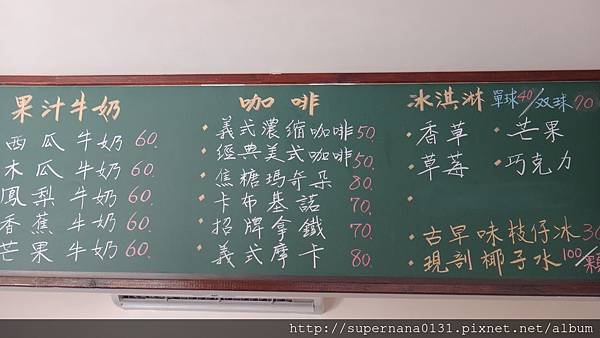 果汁牛奶
西瓜牛奶 60.
木瓜牛奶 60.
鳳梨牛奶 60.
香蕉牛奶 60.
芒果牛奶 60.
咖啡
• 義式濃縮咖啡 50.
• 經典美式咖啡 50.
• 焦糖瑪奇朵 80.
• 卡布基諾 70.
• 招牌拿鐵 70.
• 義式摩卡 80.
冰淇淋 單球40/双球70
• 香草 • 芒果
• 草莓 • 巧克力
•
• 古早味枝仔冰 30
• 現剖椰子水 100/顆
http://supernana0131.pixnet.net/album